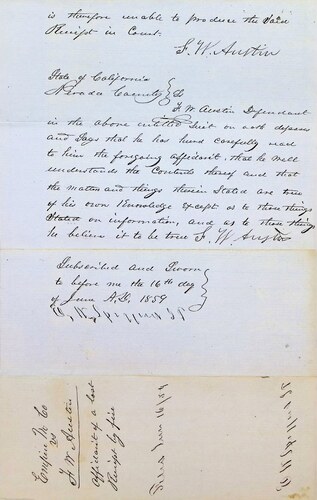 is therefore unable to produce the said
Receipt in Court.
J. W. Austin
State of California
Nevada County } SS
J. W. Austin Defendant
in the above entitled Suit on oath deposes
and Says that he has heard carefully read
to him the foregoing affidavit, that he well
understands the Contents thereof and that
the matters and things therein Stated are true
of his own Knowledge except as to those things
Stated on information, and as to those things
he believe it to be true J. W. Austin
Subscribed and Sworn
to before me the 16th day
of June A.D. 1859
J.P.
Empire M. Co
vs
J. W. Austin
Affidavit of a lost
Receipt by fire
Filed June 16/59
J.P.